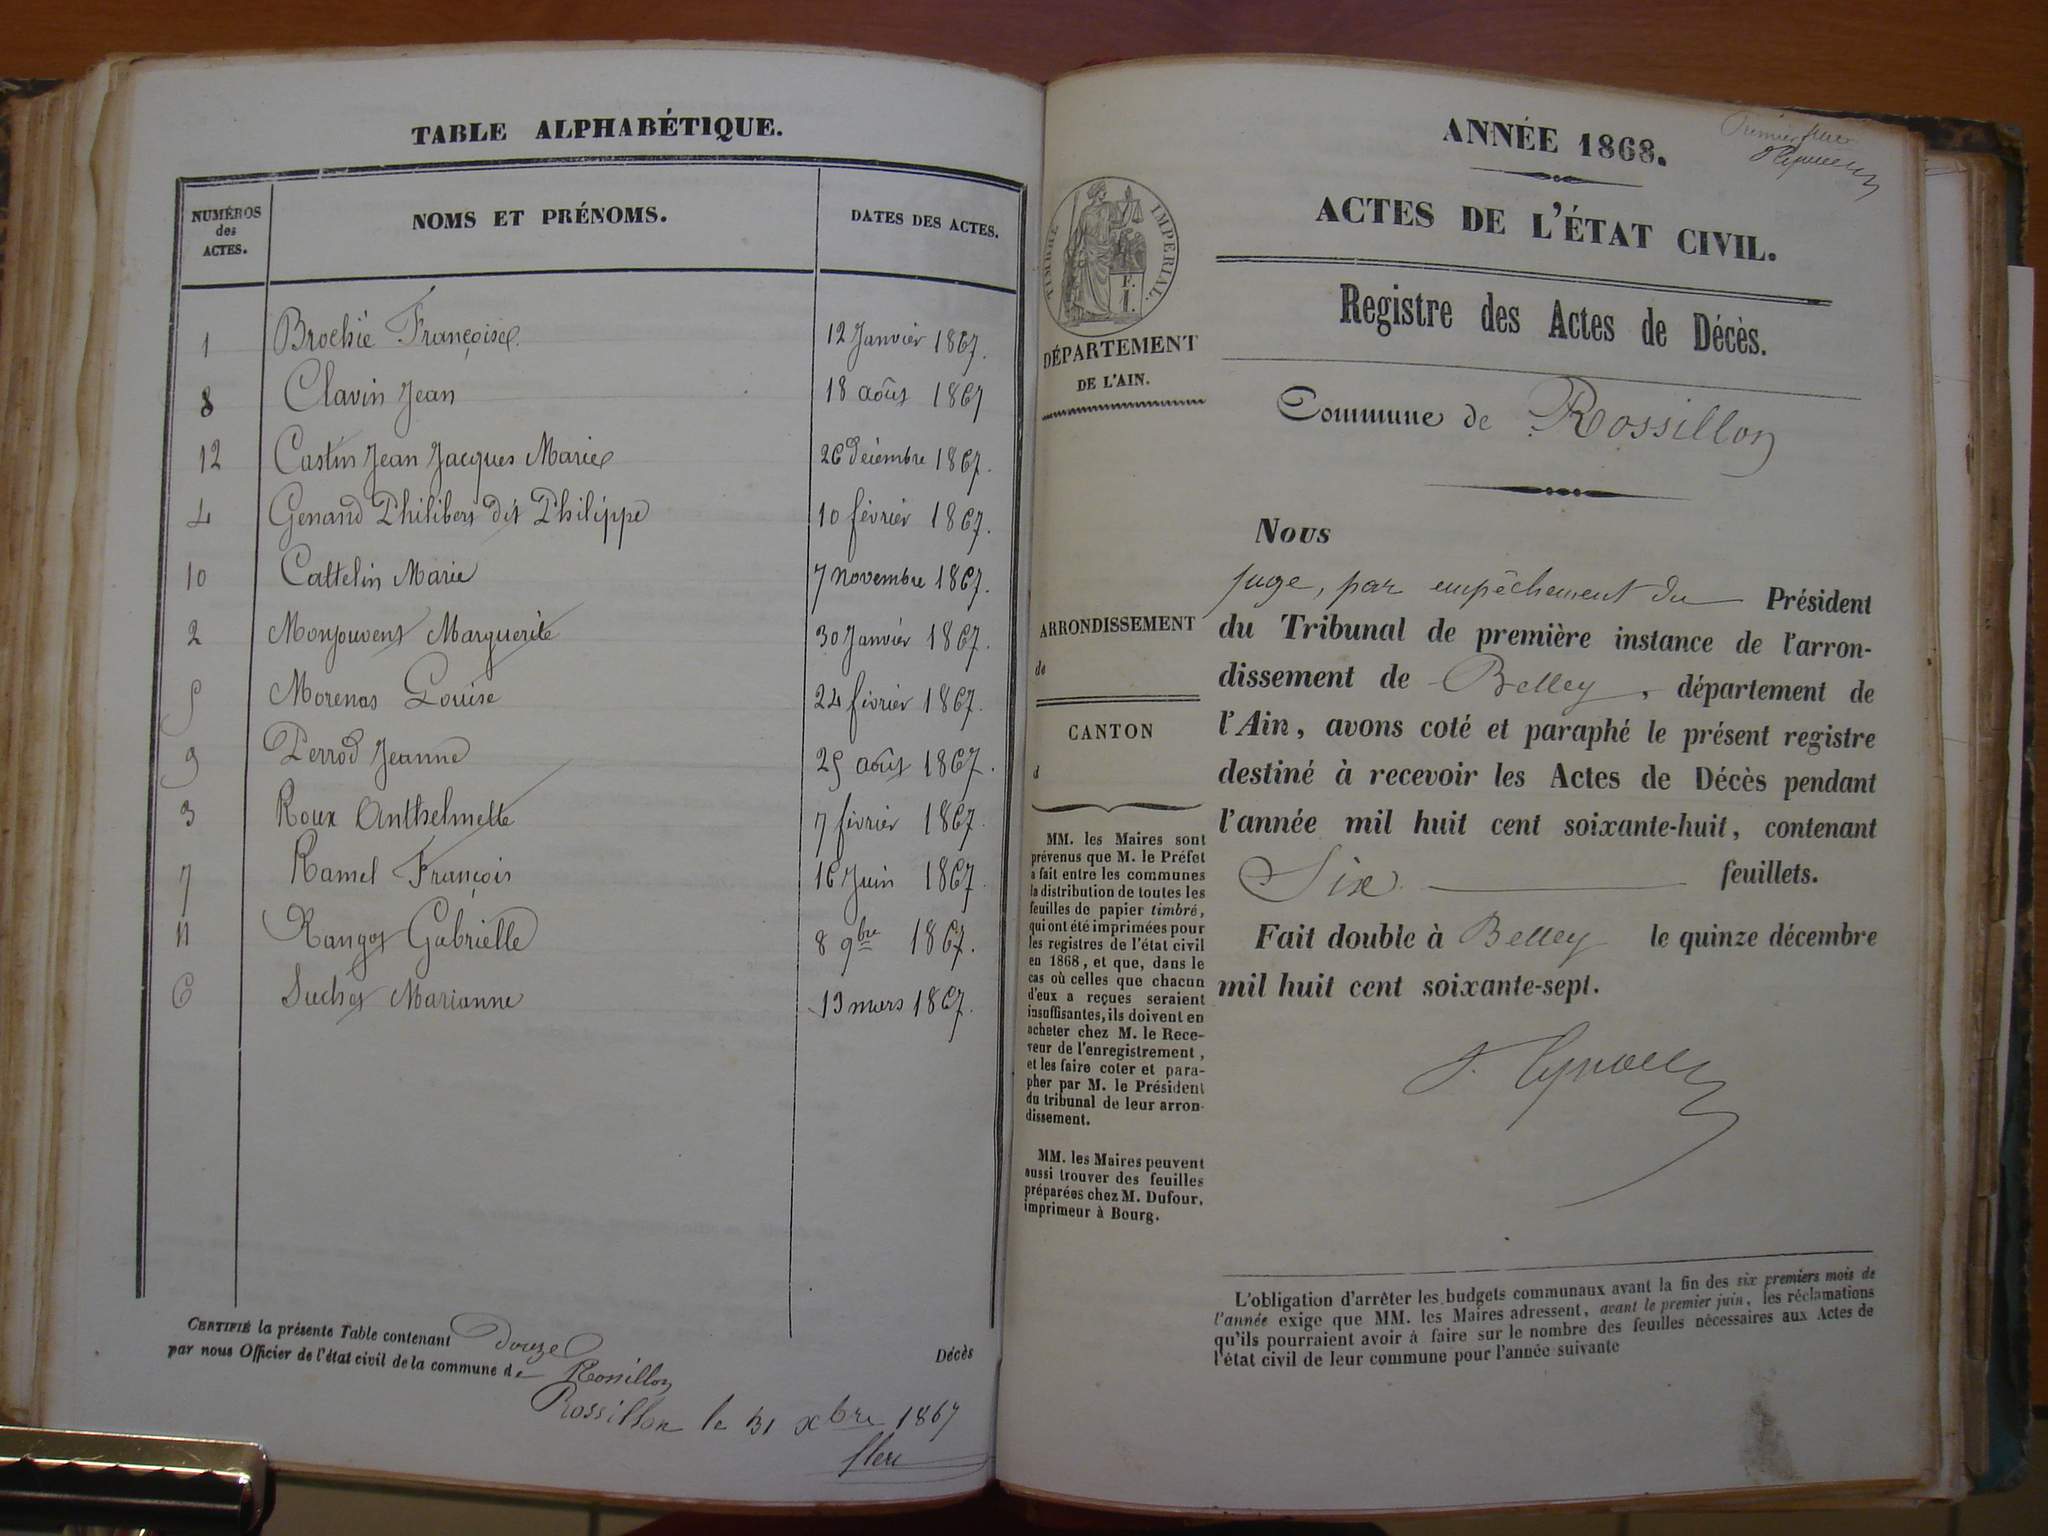 TABLE ALPHABÉTIQUE.
NUMÉROS des ACTES. NOMS ET PRÉNOMS. DATES DES ACTES.
1 Brochié Françoise. 12 Janvier 1867.
8 Clavin Jean 18 août 1867
12 Castin Jean Jacques Marie 26 décembre 1867.
4 Genand Philibert dit Philippe 10 février 1867.
10 Cattelin Marie 7 novembre 1867.
2 Monjouvent Marguerite 30 Janvier 1867.
5 Morenas Louise 24 février 1867.
9 Perrod Jeanne 25 août 1867.
3 Roux Anthelmette 7 février 1867.
7 Ramel François 16 Juin 1867.
11 Rangot Gabrielle 8 9bre 1867.
6 Suchet Marianne 13 mars 1867.
CERTIFIÉ la présente Table contenant Douze Décès
par nous Officier de l'état civil de la commune de Rossillon
Rossillon le 31 xbre 1867
ANNÉE 1868.
Premier
ACTES DE L'ÉTAT CIVIL.
TIMBRE IMPÉRIAL.
Registre des Actes de Décès.
DÉPARTEMENT
DE L'AIN.
Commune de Rossillon
ARRONDISSEMENT
de
CANTON
d
MM. les Maires sont
prévenus que M. le Préfet
a fait entre les communes
la distribution de toutes les
feuilles de papier timbré,
qui ont été imprimées pour
les registres de l'état civil
en 1868, et que, dans le
cas où celles que chacun
d'eux a reçues seraient
insuffisantes, ils doivent en
acheter chez M. le Rece-
veur de l'enregistrement,
et les faire coter et para-
pher par M. le Président
du tribunal de leur arron-
dissement.
MM. les Maires peuvent
aussi trouver des feuilles
préparées chez M. Dufour,
imprimeur à Bourg.
Nous
juge, par empêchement du Président
du Tribunal de première instance de l'arron-
dissement de Belley, département de
l'Ain, avons coté et paraphé le présent registre
destiné à recevoir les Actes de Décès pendant
l'année mil huit cent soixante-huit, contenant
Six feuillets.
Fait double à Belley le quinze décembre
mil huit cent soixante-sept.
L'obligation d'arrêter les budgets communaux avant la fin des six premiers mois de
l'année exige que MM. les Maires adressent, avant le premier juin, les réclamations
qu'ils pourraient avoir à faire sur le nombre des feuilles nécessaires aux Actes de
l'état civil de leur commune pour l'année suivante